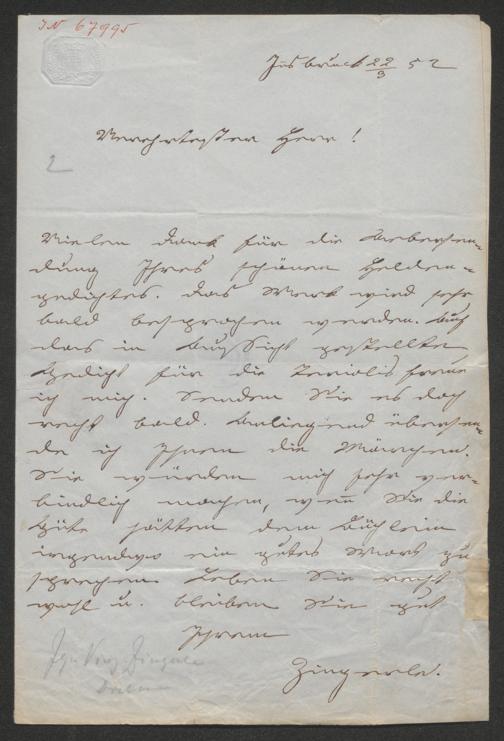 IN 67995
Insbruck 22/3 52
Verehrtester Herr!
2
Vielen Dank für die Uebersen-
dung Ihres schönen Helden-
gedichtes. Das Werk wird sehr
bald besprochen werden. Auf
das in Aussicht gestellte
Gedicht für die Teriolis freue
ich mich. Senden Sie es doch
recht bald. Anliegend übersen-
de ich Ihnen die Märchen.
Sie würden mich sehr ver-
bindlich machen, wenn Sie die
Güte hätten dem Büchlein
irgendwo ein gutes Wort zu
sprechen. Leben Sie recht
wohl u. bleiben Sie gut
Ihrem
Zingerle.
Ign Vinz Zingerle